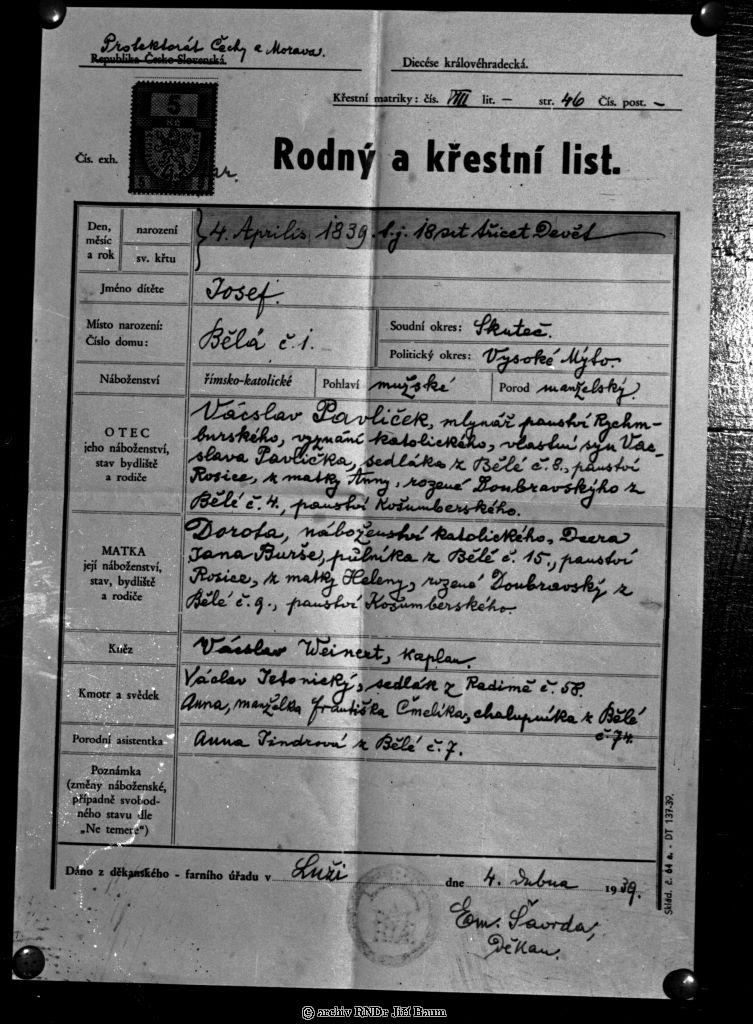 Protektorát Čechy a Morava.
Republika Česko-Slovenská.
Diecése královéhradecká.
Křestní matriky: čís. VIII lit. – str. 46 Čís. post. –
5
Čís. exh.
Rodný a křestní list.
Den, měsíc a rok
narození
sv. křtu
4. Aprilis 1839 t.j. 18set třicet Devět
Jméno dítěte
Josef.
Místo narození:
Číslo domu:
Bělá č. 1.
Soudní okres: Skuteč.
Politický okres: Vysoké Mýto.
Náboženství
římsko-katolické
Pohlaví mužské
Porod manželský.
OTEC
jeho náboženství,
stav bydliště
a rodiče
Vácslav Pavlíček, mlynář panství Rychm-
burského, vyznání katolického, vlastní syn Vác-
slava Pavlíčka, sedláka z Bělé č. 8., panství
Rosice, z matky Anny, rozené Doubravskýho z
Bělé č. 4., panství Košumberského.
MATKA
její náboženství,
stav, bydliště
a rodiče
Dorota, náboženství katolického, Dcera
Jana Burše, půlníka z Bělé č. 15., panství
Rosice, z matky Heleny, rozené Doubravský z
Bělé č. 9., panství Košumberského.
Kněz
Vácslav Weinert, kaplan.
Kmotr a svědek
Václav Tetonický, sedlák z Radimě č. 58.
Anna, manželka Františka Čmelíka, chalupníka z Bělé
č. 74.
Porodní asistentka
Anna Jindrová z Bělé č. 7.
Poznámka
(změny náboženské,
případně svobod-
ného stavu dle
„Ne temere")
Dáno z děkanského - farního úřadu v Luži dne 4. dubna 1939.
Em. Šavrda,
Děkan.
Sklad. č. 64 a. - DT 137-39.
© archiv RNDr Jiří Baum